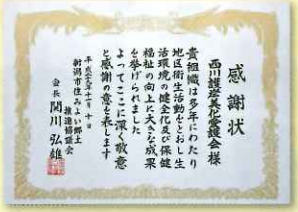 感謝状
西川護岸美化愛護会 様
貴組織は多年にわたり
地区衛生活動をとおし生
活環境の健全化及び保健
福祉の向上に大きな成果
を挙げられました
よってここに深く敬意
と感謝の意を表します
平成二十九年十一月十日
新潟市住みよい郷土
推進協議会
会長 関川弘雄